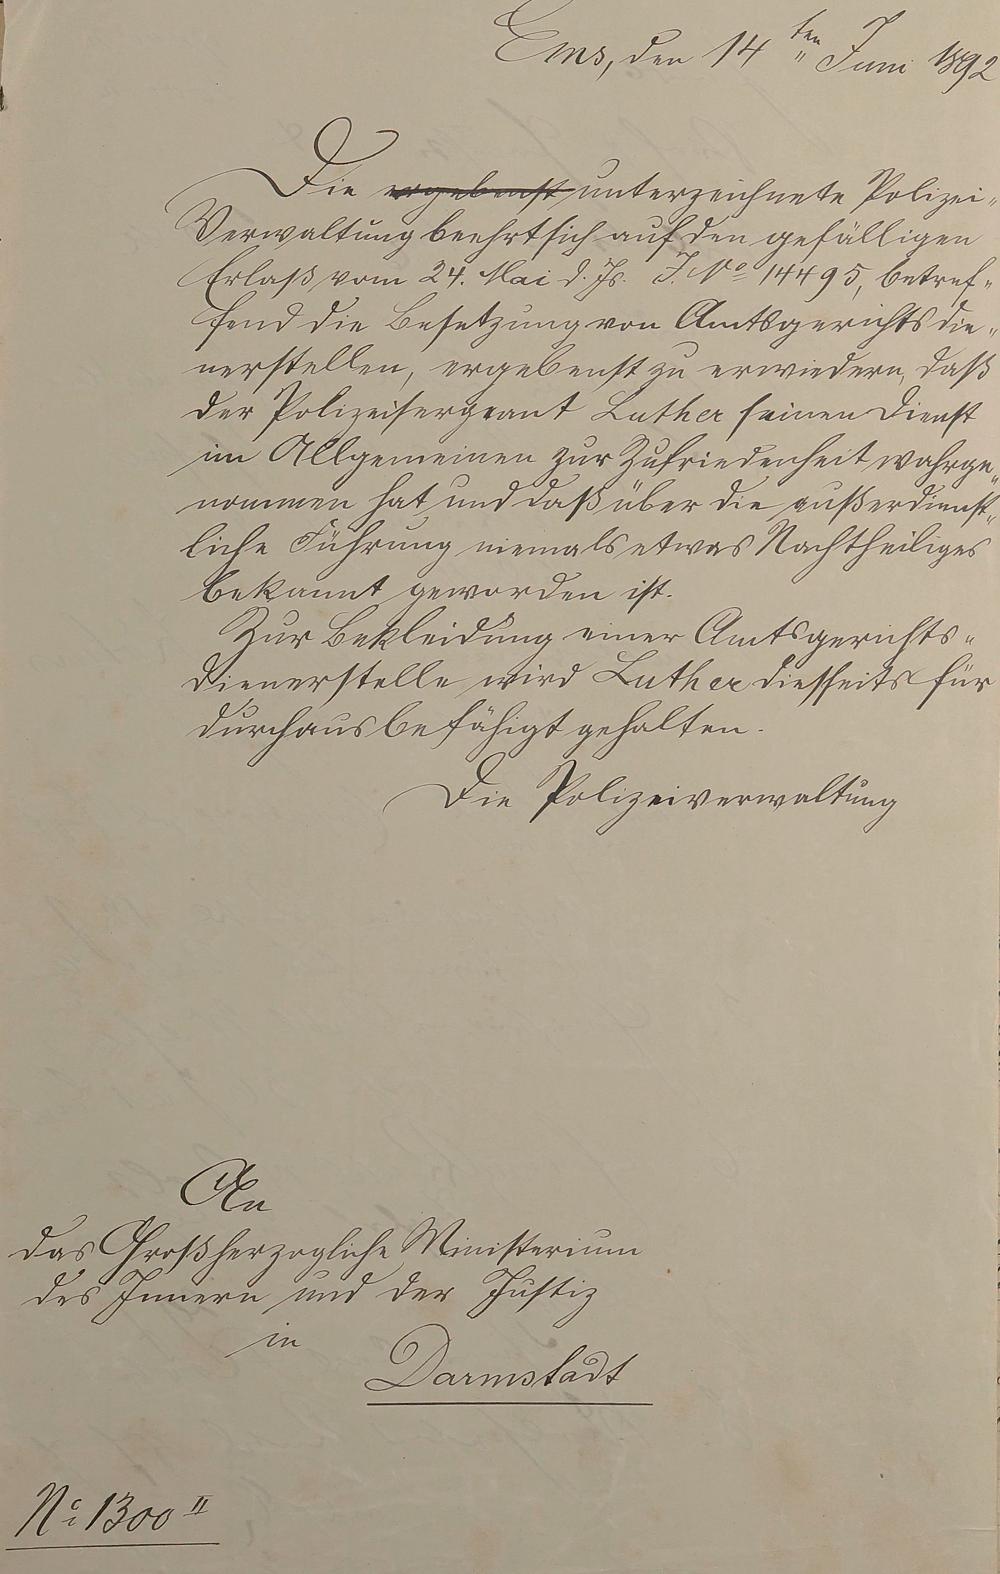 Ems, den 14ten Juni 1892
Die ergebenst unterzeichnete Polizei-
Verwaltung beehrt sich auf den gefälligen
Erlaß vom 24. Mai d. Js. J. No 14495, betref-
fend die Besetzung von Amtsgerichtsdie-
nerstellen, ergebenst zu erwiedern, daß
der Polizeisergeant Luther seinen Dienst
im Allgemeinen zur Zufriedenheit wahrge-
nommen hat und daß über die außerdienst-
liche Führung niemals etwas Nachtheiliges
bekannt geworden ist.
Zur Bekleidung einer Amtsgerichts-
dienerstelle wird Luther diesseits für
durchaus befähigt gehalten.
Die Polizeiverwaltung
An
das Großherzogliche Ministerium
des Innern und der Justiz
in
Darmstadt
No 1300 II